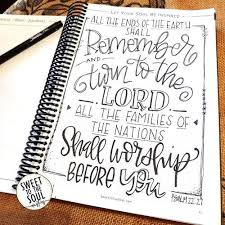 LET YOUR SOUL BE INSPIRED
ALL THE ENDS OF THE EARTH
SHALL
Remember
AND
turn to the
LORD
ALL THE FAMILIES OF
THE NATIONS
Shall Worship
BEFORE You
PSALM 22:27
SWEET
TO THE
SOUL